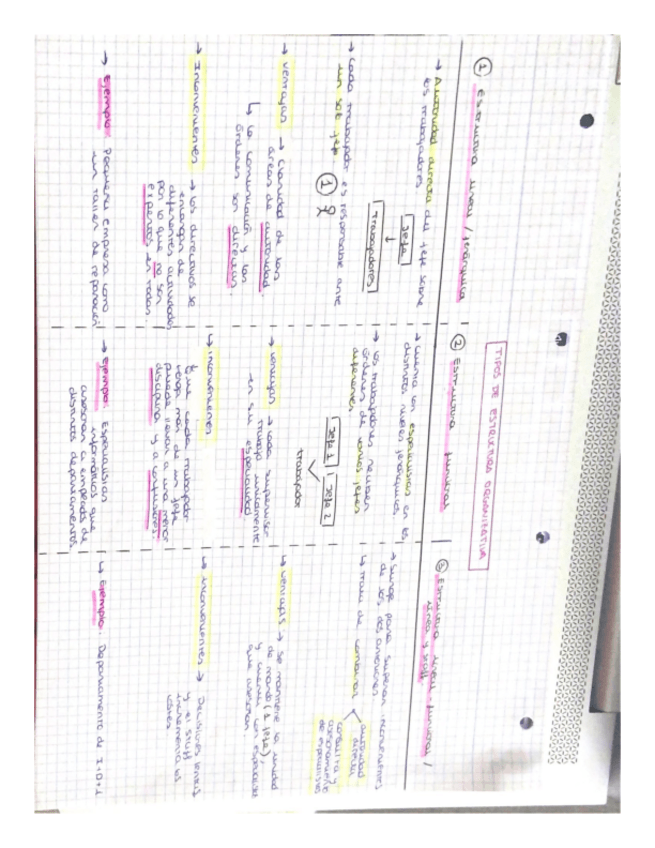 TIPOS DE ESTRUCTURA ORGANIZATIVA
① Estructura lineal / jerárquica
→ Autoridad directa del jefe sobre
los trabajadores
Jefe
↓
Trabajadores
→ Cada trabajador es responsable ante
un solo jefe. ①
→ ventajas → Claridad de las
áreas de autoridad.
↳ La comunicación y las
órdenes son directas.
→ Inconvenientes → Los directivos se
encargan de
diferentes actividades
por lo que no son
expertos en todas.
→ Ejemplo: Pequeña empresa como
un taller de reparación
② Estructura funcional
→ Cuenta con especialistas en los
distintos niveles jerárquicos.
→ Los trabajadores reciben
órdenes de varios jefes
diferentes
Jefe 1 | Jefe 2
trabajador
→ ventajas → cada supervisor
trabaja únicamente
en su especialidad
→ inconvenientes
que cada trabajador
tenga más de un jefe
puede llevar a una menor
disciplina y a confusiones.
→ Ejemplo: Especialistas
informáticos que
asesoran a empleados de
distintos departamentos
③ Estructura lineal-funcional /
línea y staff.
→ Surge para superar inconvenientes
de las dos anteriores
↳ trata de combinar
autoridad
directa
consulta y
asesoramiento
de especialistas
↳ ventajas → se mantiene la unidad
de mando (1 jefe),
y cuentan con especialistas
que asesoran
↳ inconvenientes → Decisiones lentas
y el staff
incrementa los
costes
↳ Ejemplo: Departamento de I+D+i